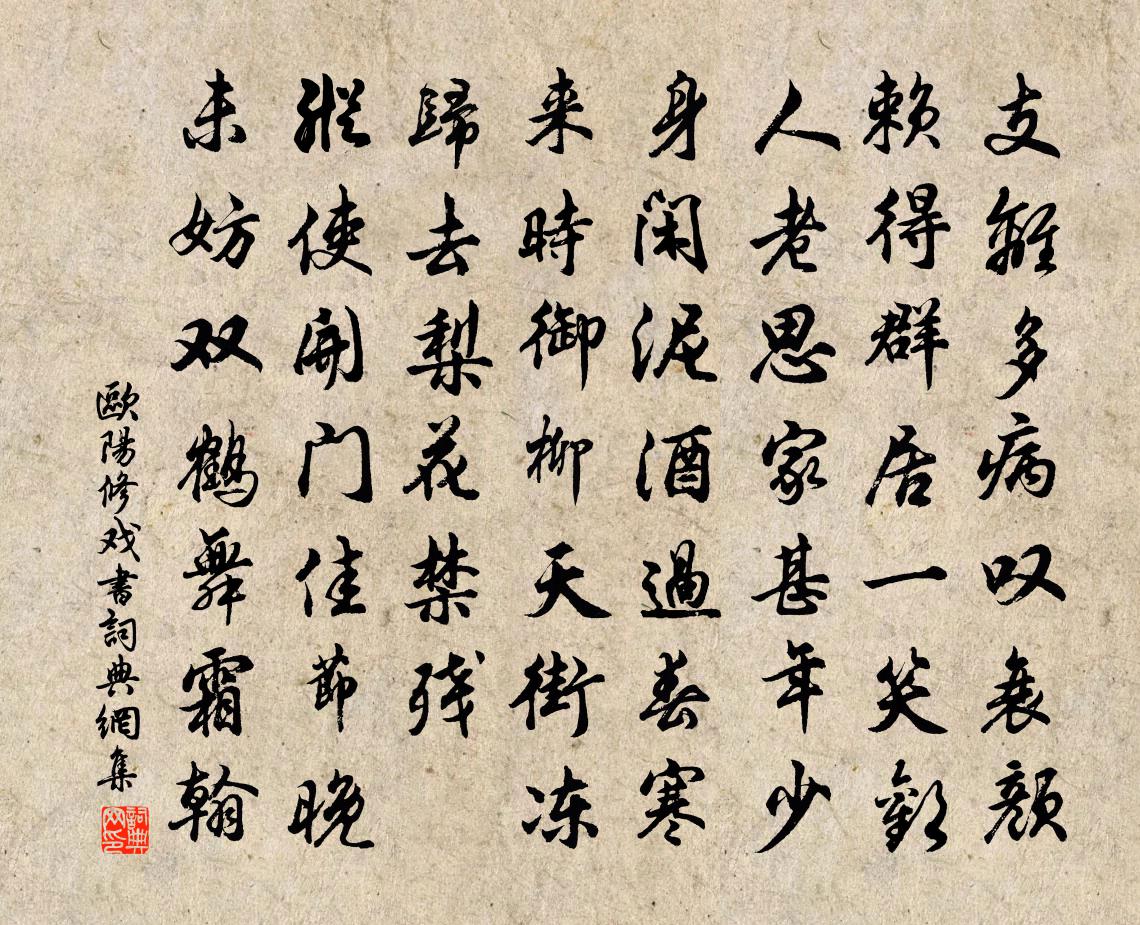 支離多病叹衰颜
赖得群居一笑歡
人老思家甚年少
身闲泥酒過春寒
来時御柳天街冻
歸去梨花禁残
縱使開门佳節晚
未妨双鶴舞霜翰
歐陽修戏書詞典網集
詞典网印